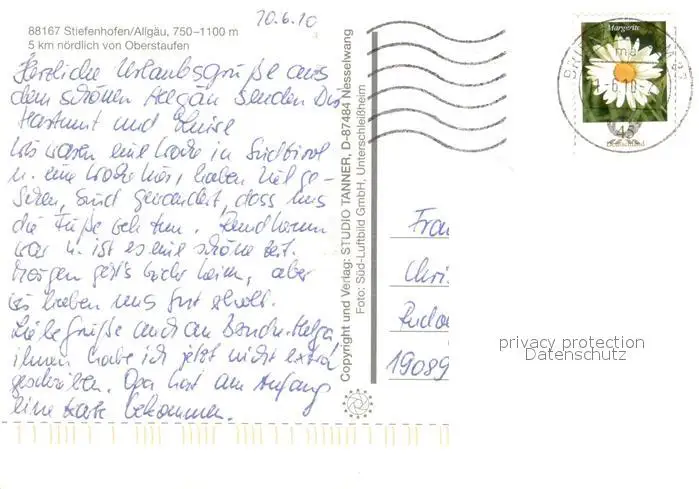 20.6.10
88167 Stiefenhofen/Allgäu, 750–1100 m
5 km nördlich von Oberstaufen
Herzliche Urlaubsgrüße aus
dem schönen Allgäu senden Dir
Hartmut und Luise
Wir waren eine Woche in Südtirol
u. eine Woche hier, haben viel ge-
sehen, sind gewandert, dass uns
die Füße wehtun. Rundherum
war u. ist es eine schöne Zeit.
Morgen geht's wieder heim, aber
wir haben uns gut erholt.
Liebe Grüße auch an Helga,
ihnen habe ich jetzt nicht extra
geschrieben. Opa hat am Anfang
eine Karte bekommen.
Copyright und Verlag: STUDIO TANNER, D-87484 Nesselwang
Foto: Süd-Luftbild GmbH, Unterschleißheim
Margerite
45
Deutschland
Frau
Chri
Rudo
19089
privacy protection
Datenschutz